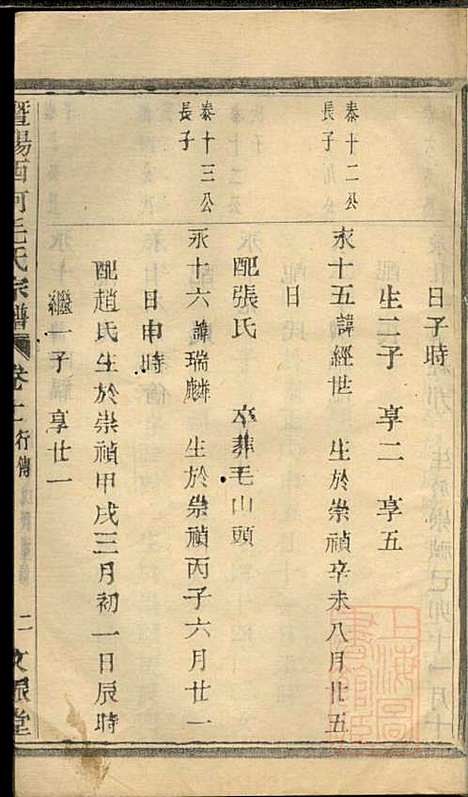 日子時
生二子 享二 享五
泰十二公
長子
永十五諱經世 生於崇禎辛未八月廿五
日
配張氏 卒葬毛山頭
泰十三公
長子
永十六諱瑞麟 生於崇禎丙子六月廿一
日申時
配趙氏生於崇禎甲戌三月初一日辰時
繼一子享廿一
暨陽西河毛氏宗譜
行傳
二
堂